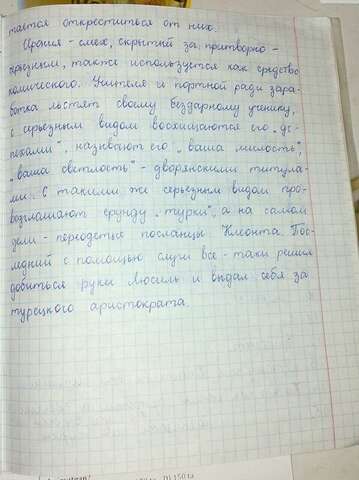 тается откреститься от них.
Ирония - смех, скрытый за притворно -
серьезным, также используется как средство
комического. Учителя и портной ради зара-
ботка льстят своему бездарному ученику,
с серьезным видом восхищаются его „ус-
пехами", называют его „ваша милость",
„ваша светлость" - дворянскими титула-
ми. С такими же серьезным видом про-
возглашают ерунду „турки", а на самом
деле - переодетые посланцы Клеонта. Пос-
ледний с помощью слуги все - таки решил
добиться руки Люсиль и выдал себя за
турецкого аристократа.